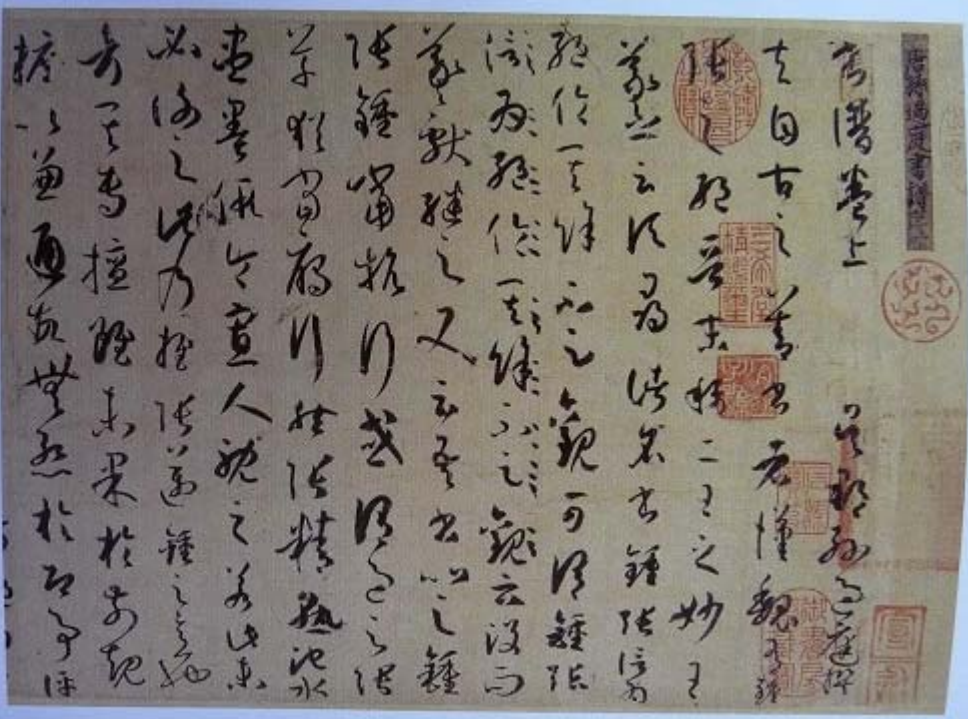 唐孫過庭書譜
書譜卷上 吳郡孫過庭撰
夫自古之善書者漢魏有鍾
張之絕晉末稱二王之妙王
羲之云頃尋諸名書鍾張信為
絕倫其餘不足觀可謂鍾張
信為絕倫其餘不足觀云沒而
羲獻繼之又云吾書比之鍾
張鍾當抗行或謂過之張
草猶當鴈行然張精熟池水
盡墨假令寡人耽之若此未
必謝之此乃推張邁鍾之意也
考其專擅雖未果於前規
摭以兼通故無慚於即事評